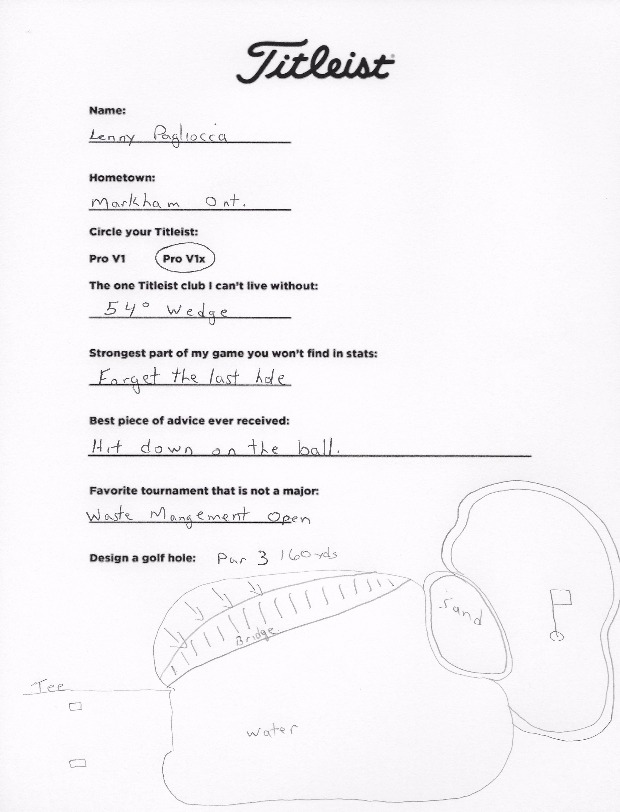 Titleist
Name:
Lenny Pagliocca
Hometown:
Markham Ont.
Circle your Titleist:
Pro V1 Pro V1x
The one Titleist club I can't live without:
54° Wedge
Strongest part of my game you won't find in stats:
Forget the last hole
Best piece of advice ever received:
Hit down on the ball.
Favorite tournament that is not a major:
Waste Mangement Open
Design a golf hole: Par 3 160 yds
Sand
Bridge
Tee
Water